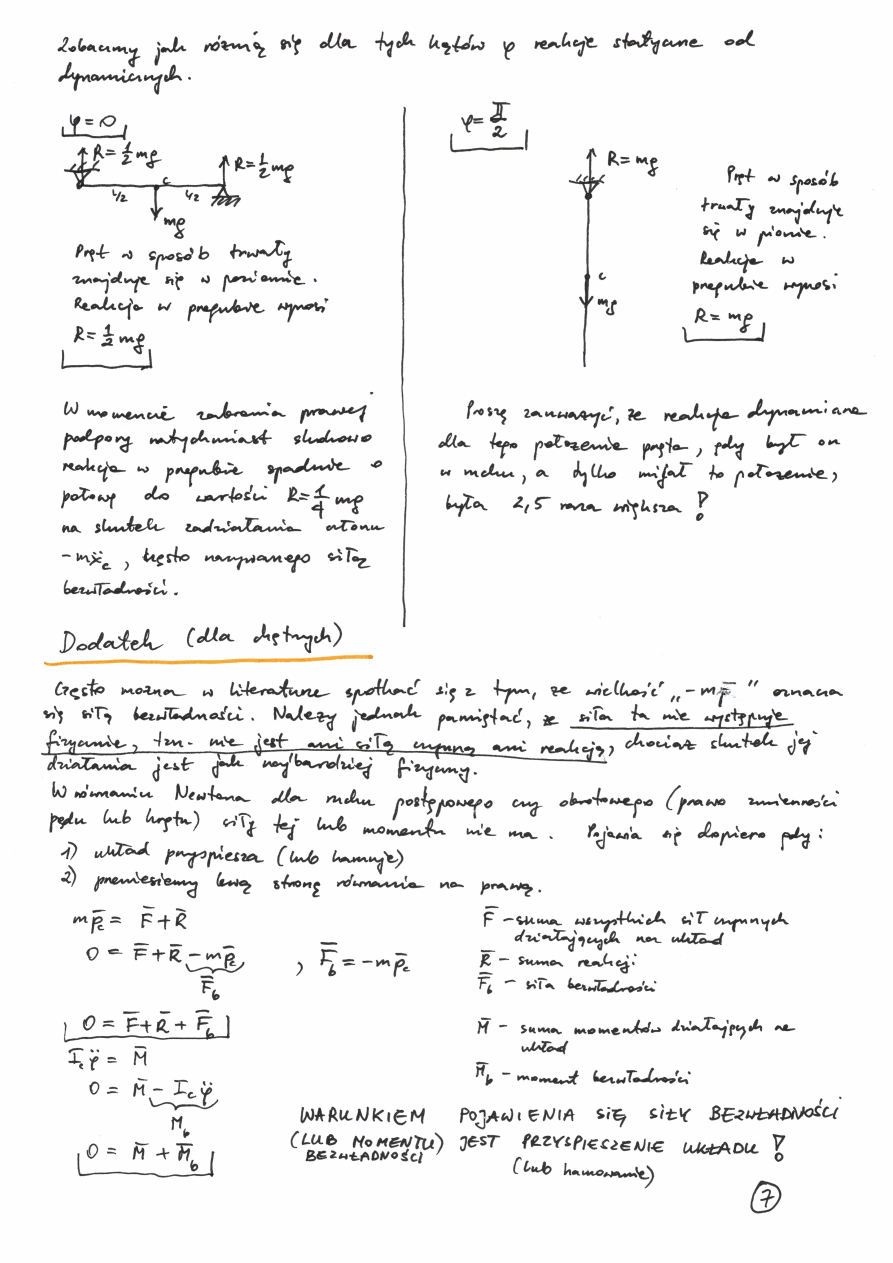 Zobaczmy jak różnią się dla tych kątów φ reakcje statyczne od
dynamicznych.
φ = 0
R = 1/2 mg
R = 1/2 mg
c
L/2
L/2
mg
Pręt w sposób trwały
znajduje się w poziomie.
Reakcja w przegubie wynosi
R = 1/2 mg
W momencie zabrania prawej
podpory natychmiast skokowo
reakcja w przegubie spadnie o
połowę do wartości R = 1/4 mg
na skutek zadziałania członu
-mẍ_c, często nazywanego siłą
bezwładności.
φ = π/2
R = mg
c
mg
Pręt w sposób
trwały znajduje
się w pionie.
Reakcja w
przegubie wynosi
R = mg
Proszę zauważyć, że reakcja dynamiczna
dla tego położenia pręta, gdy był on
w ruchu, a tylko mijał to położenie,
była 2,5 raza większa !
Dodatek (dla chętnych)
Często można w literaturze spotkać się z tym, że wielkość „-mp̄̈" oznacza
się siłą bezwładności. Należy jednak pamiętać, że siła ta nie występuje
fizycznie, tzn. nie jest ani siłą czynną ani reakcją, chociaż skutek jej
działania jest jak najbardziej fizyczny.
W równaniu Newtona dla ruchu postępowego czy obrotowego (prawo zmienności
pędu lub krętu) siły tej lub momentu nie ma. Pojawia się dopiero gdy:
1) układ przyspiesza (lub hamuje)
2) przeniesiemy lewą stronę równania na prawą.
mp̄̈_c = F̄ + R̄
0 = F̄ + R̄ - mp̄̈_c , F̄_b = -mp̄̈_c
F̄_b
0 = F̄ + R̄ + F̄_b
I_c φ̈ = M̄
0 = M̄ - I_c φ̈
M_b
0 = M̄ + M̄_b
F̄ - suma wszystkich sił czynnych
działających na układ
R̄ - suma reakcji
F̄_b - siła bezwładności
M̄ - suma momentów działających na
układ
M̄_b - moment bezwładności
WARUNKIEM POJAWIENIA SIĘ SIŁY BEZWŁADNOŚCI
(LUB MOMENTU BEZWŁADNOŚCI) JEST PRZYSPIESZENIE UKŁADU !
(lub hamowanie)
7